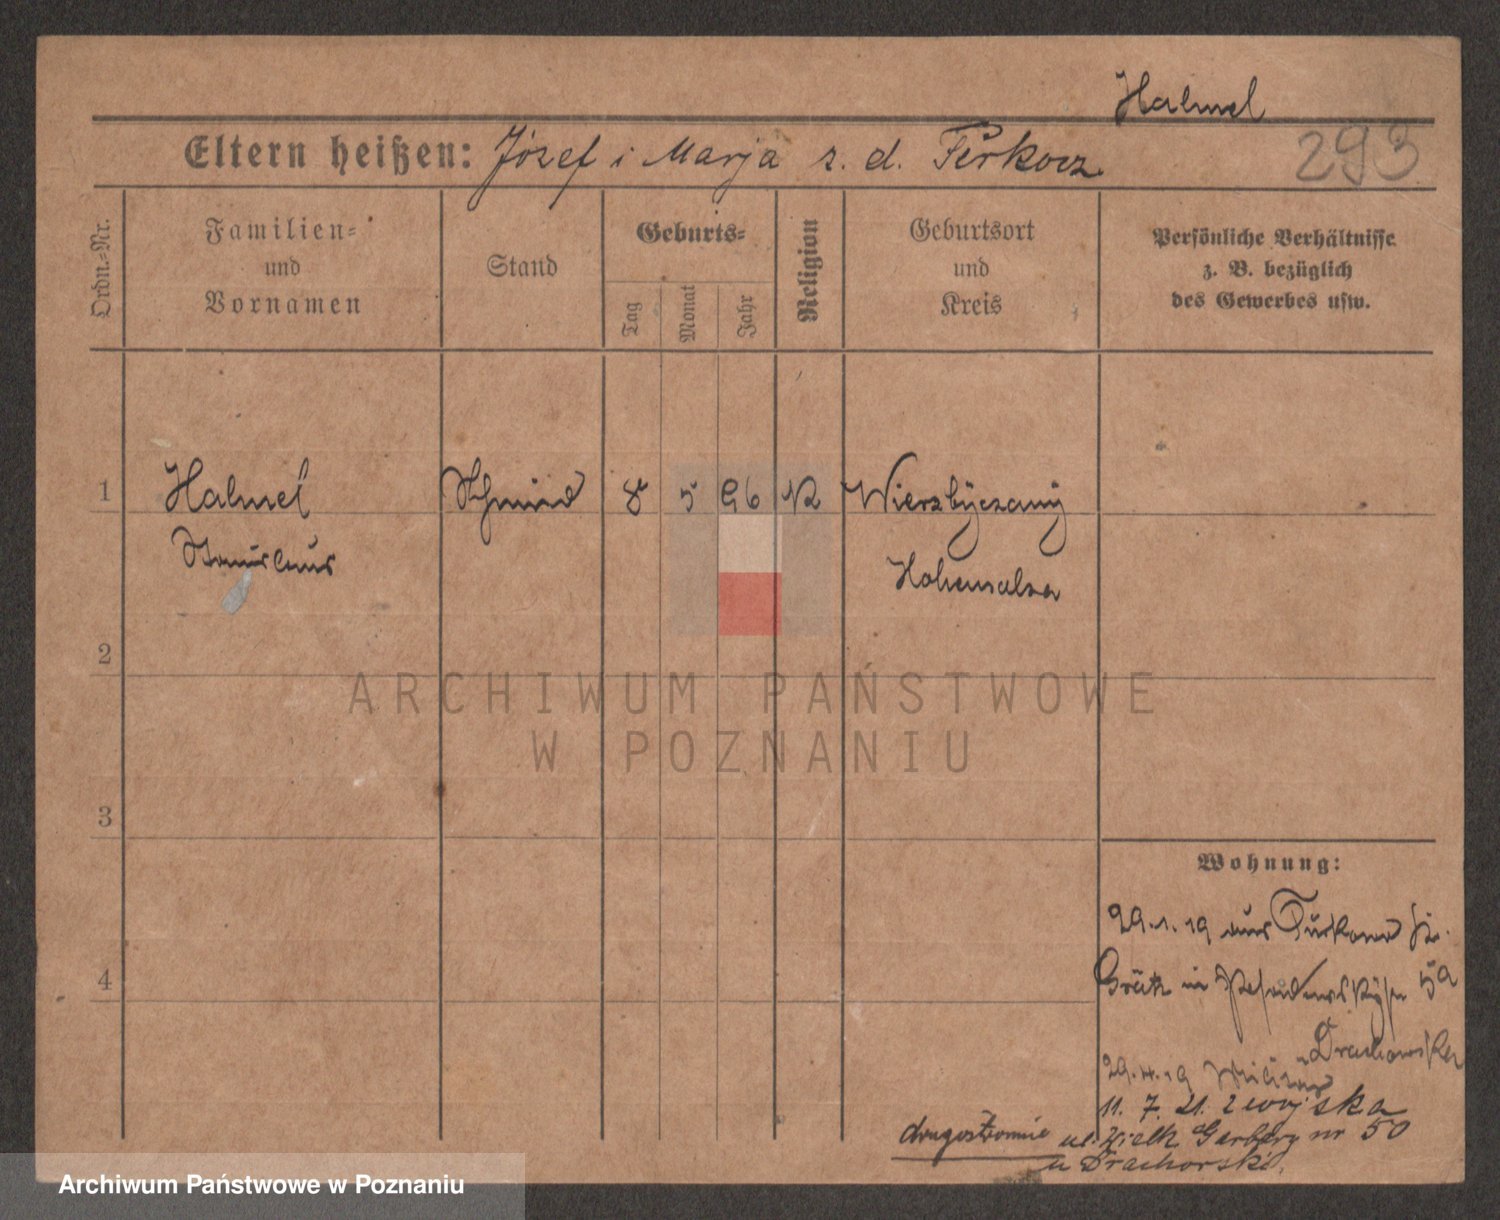 Halmel
Eltern heißen: Józef i Marja z. d. Ferkocz
293
Ordn.-Nr.
Familien-
und
Vornamen
Stand
Geburts-
Tag
Monat
Jahr
Religion
Geburtsort
und
Kreis
Persönliche Verhältnisse
z. B. bezüglich
des Gewerbes usw.
1 Halmel Schmied 8 5 96 K Wierzbyczany
Stanislaus Hohensalza
2
3
4
Wohnung:
29.1.19 aus Turkowo Kr.
Grätz in 5a
Drachowska
29.4.19 Militär
11. 7. 21. z wojska
drugostronnie ul. Wielk. Garbary nr 50
u Drachowski.
ARCHIWUM PAŃSTWOWE
W POZNANIU
Archiwum Państwowe w Poznaniu